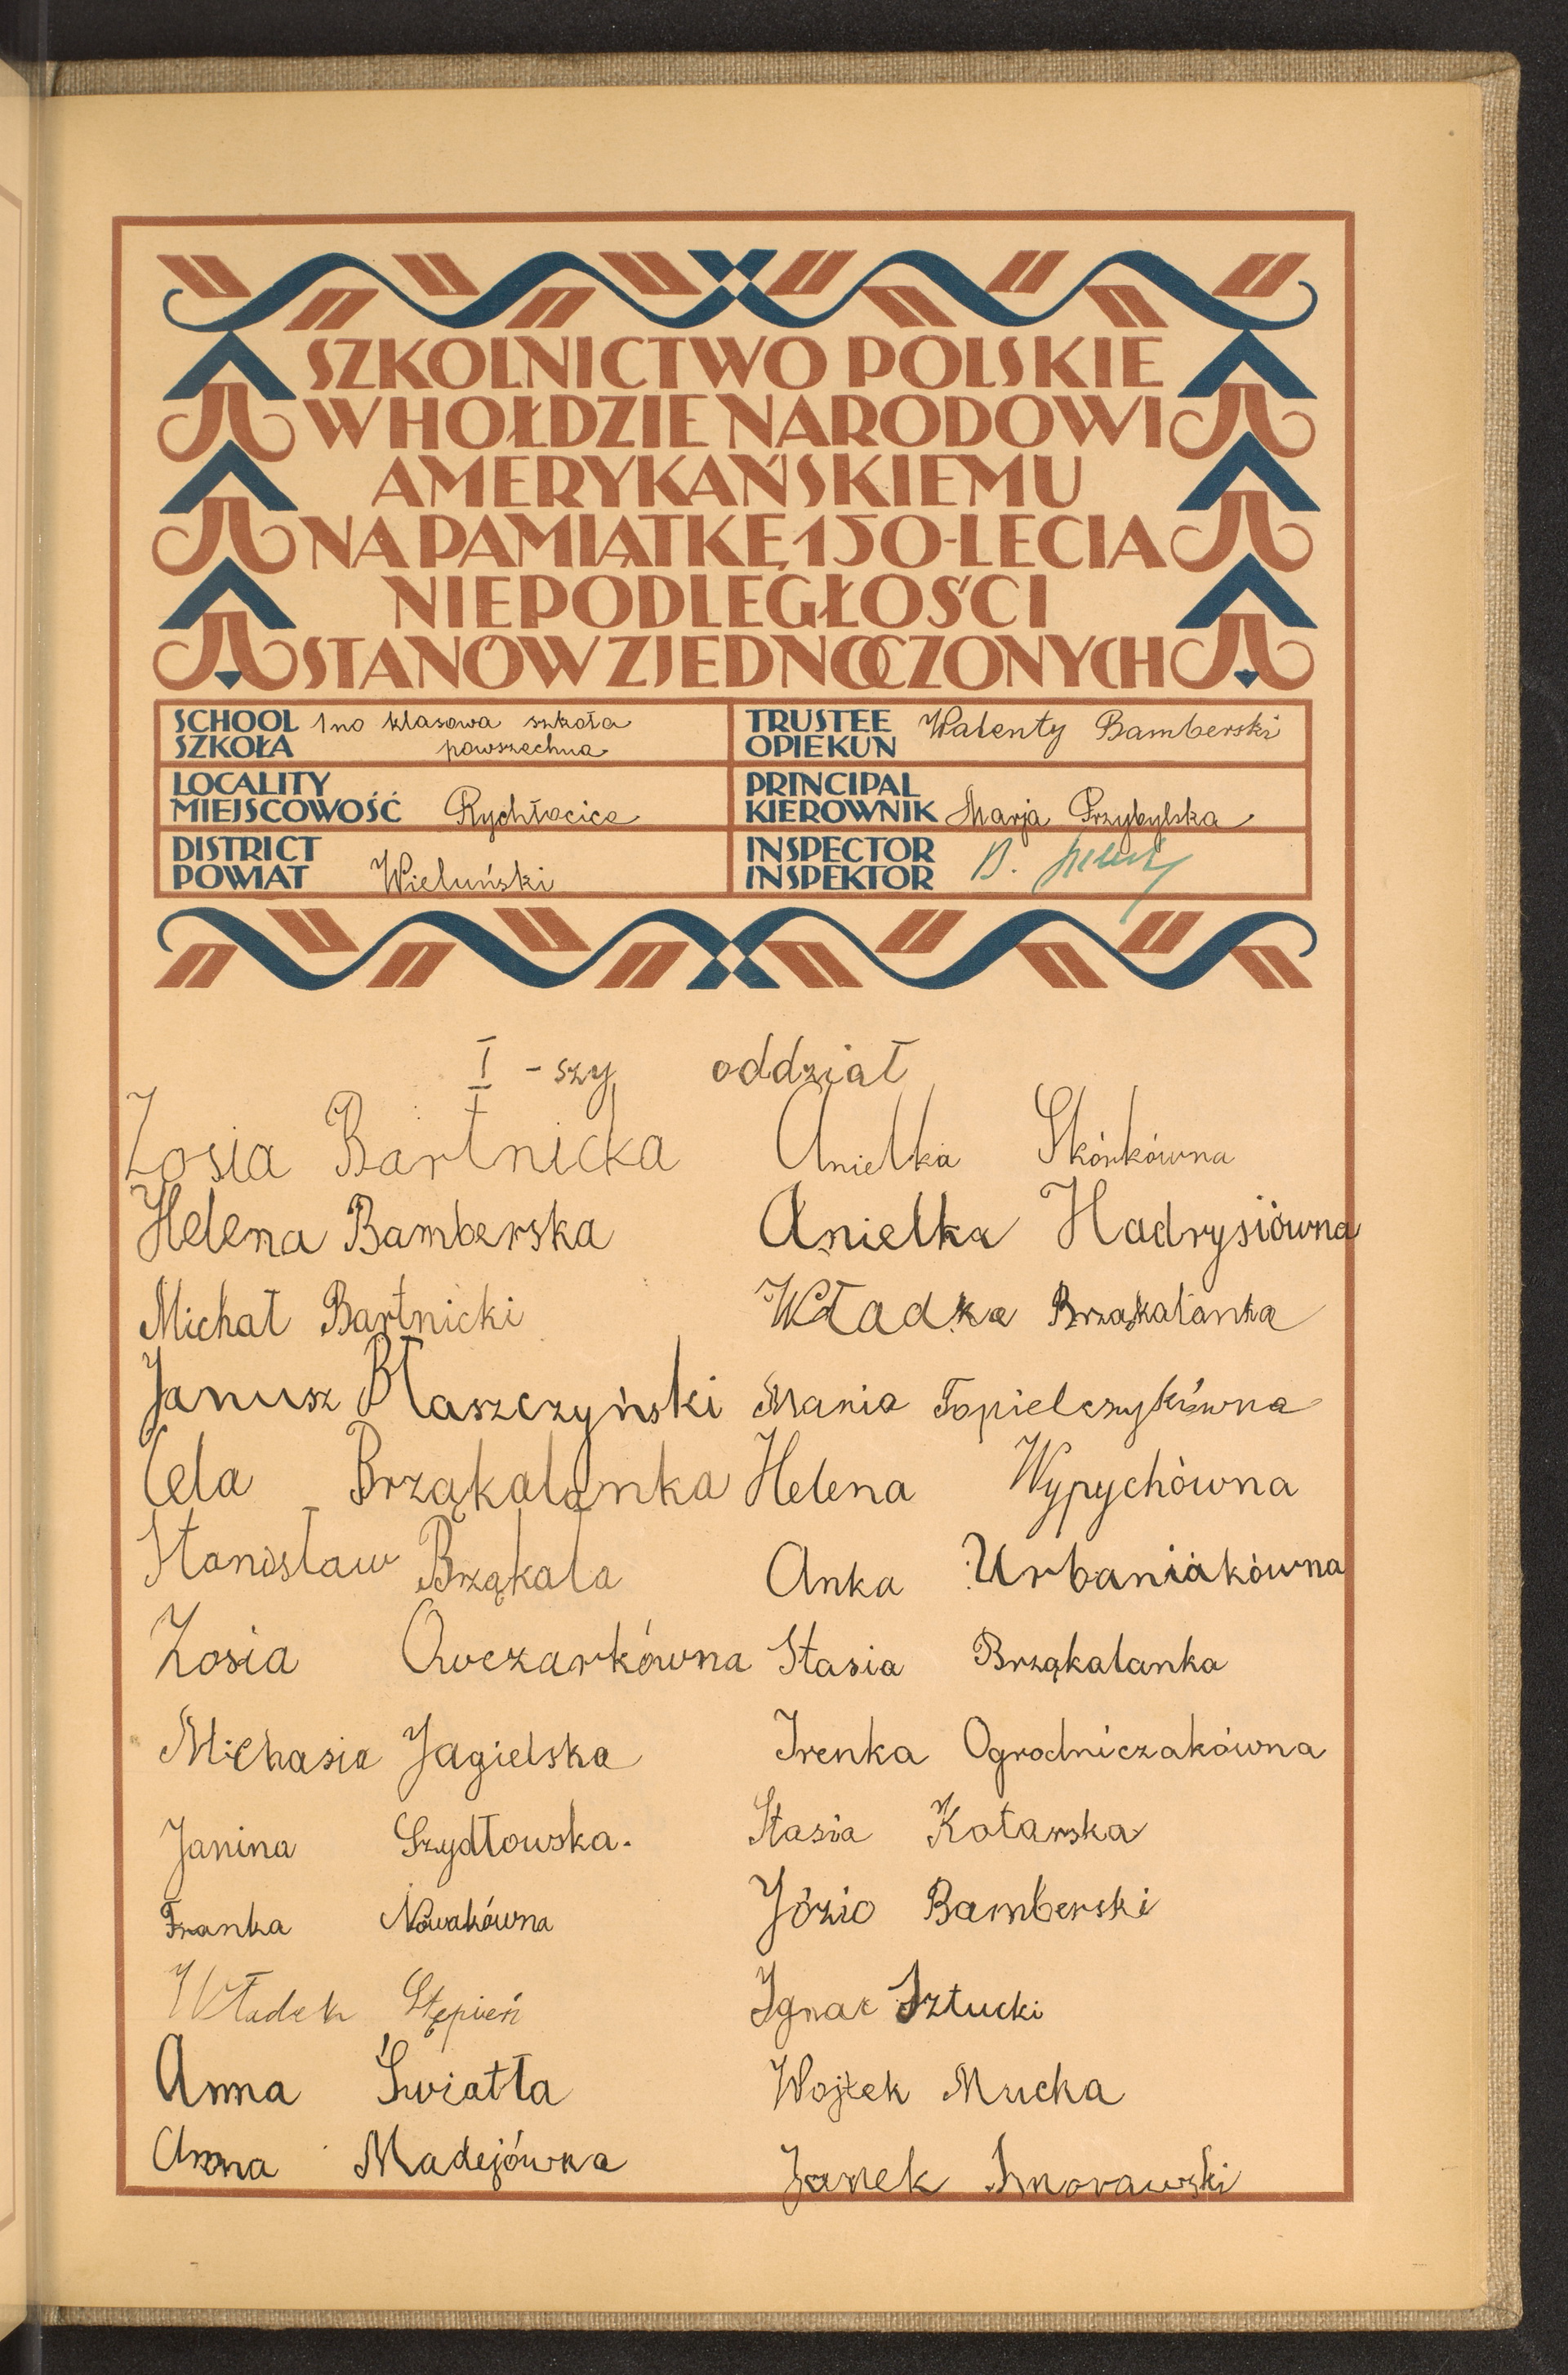 SZKOLNICTWO POLSKIE
W HOŁDZIE NARODOWI
AMERYKAŃSKIEMU
NA PAMIĄTKĘ 150-LECIA
NIEPODLEGŁOŚCI
STANÓW ZJEDNOCZONYCH
SCHOOL
SZKOŁA
1no klasowa szkoła
powszechna
TRUSTEE
OPIEKUN
Walenty Bamberski
LOCALITY
MIEJSCOWOŚĆ
Rychłocice
PRINCIPAL
KIEROWNIK
Marja Przybylska
DISTRICT
POWIAT
Wieluński
INSPECTOR
INSPEKTOR
B.
I-szy oddział
Zosia Bartnicka
Helena Bamberska
Michał Bartnicki
Janusz Błaszczyński
Cela Brząkalanka
Stanisław Brząkała
Zosia Owczarkówna
Michasia Jagielska
Janina Szydłowska.
Franka Nowakówna
Władek Stępień
Anna Światła
Anna Madejówna
Anielka Skórkówna
Anielka Hadrysiówna
Władka Brząkalanka
Mania Topielczykówna
Helena Wypychówna
Anka Urbaniakówna
Stasia Brząkalanka
Irenka Ogrodniczakówna
Stasia Kotarska
Józio Bamberski
Ignac Sztucki
Wojtek Mucka
Janek Smorawski